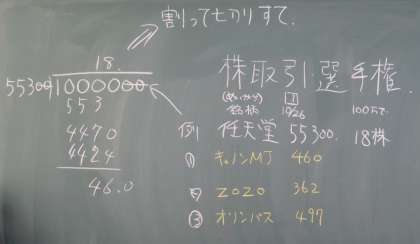 割って切りすて.
18.
55300 1000000
553
4470
4424
46.0
株取引選手権.
(めいがら)
銘柄 10/26 100万
例) 任天堂 55300. 18株
① キャノンMJ 460
② ZOZO 362
③ オリンパス 497